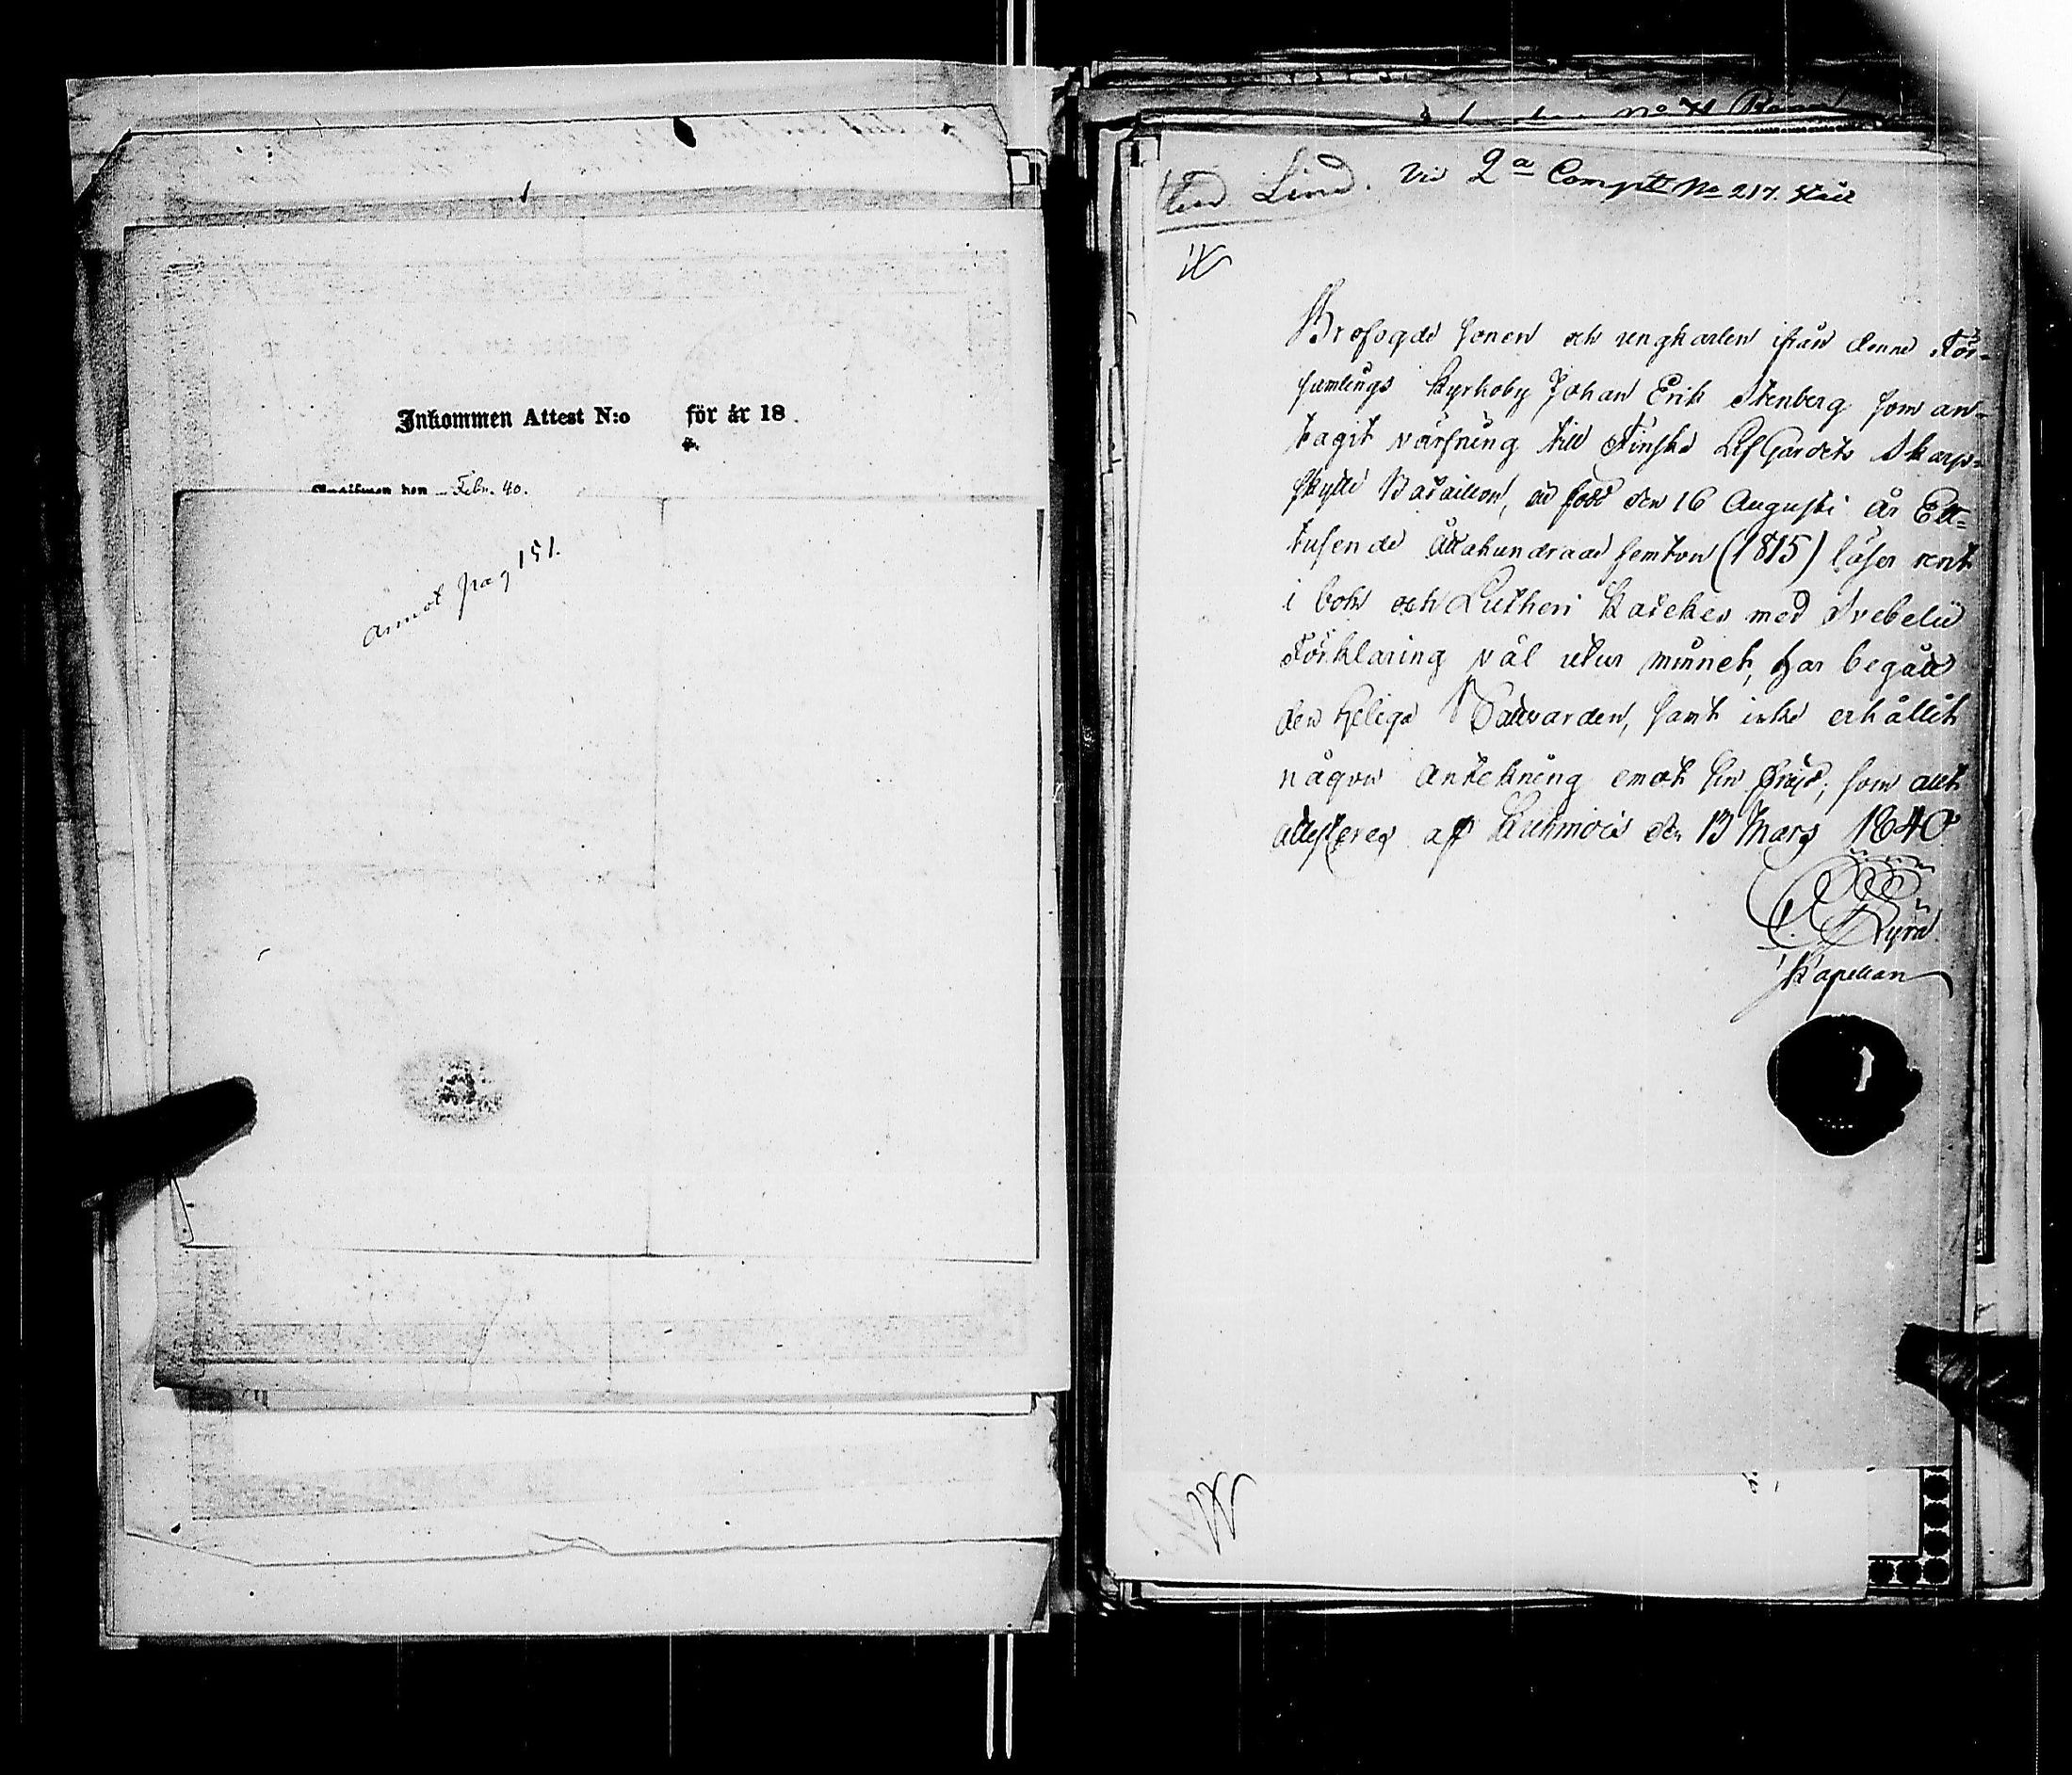 Inkommen Attest N:o för år 18 .
den Febr. 40.
annot pag 151.
N:o 71
Lind. vid 2a Comp:ts No 217. Käll
Brofogde sonen och ungkarlen ifrån denne För-
samlings Kyrkoby Johan Erik Stenberg som an-
tagit värfning till Finska LifGardets Skarp-
skytte Bataillon, är född den 16 Augusti år Ett-
tusende åttahundrade femton (1815) läser rent
i bok och Lutheri Kateches med Svebelii
Förklaring väl utur minnet, har begått
den heliga Nattvarden, samt icke erhållit
någon anteckning emot sin fräjd; som allt
attesteras af Kuhmois den 13 Mars 1840.
Kyrä
Kapellan